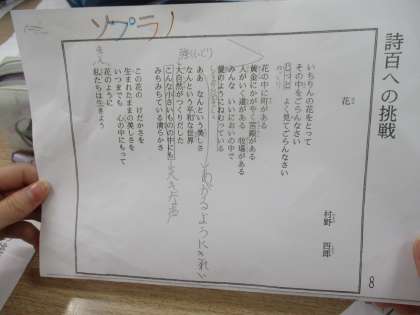 詩百への挑戦
花
村野 四郎
いちりんの花をとって
その中をごらんなさい
よく見てごらんなさい
花の中に町がある
黄金にかがやく宮殿がある
人がいく道がある 牧場がある
みんな いいにおいの中で
愛のようにねむっている
ああ なんという美しさ
なんという平和な世界
大自然がつくりだした
こんな小さいものの中にも
みちみちている清らかさ
この花の けだかさを
生まれたままの美しさを
いつまでも 心の中にもって
花のように
私たちは生きよう
ソプラノ
8